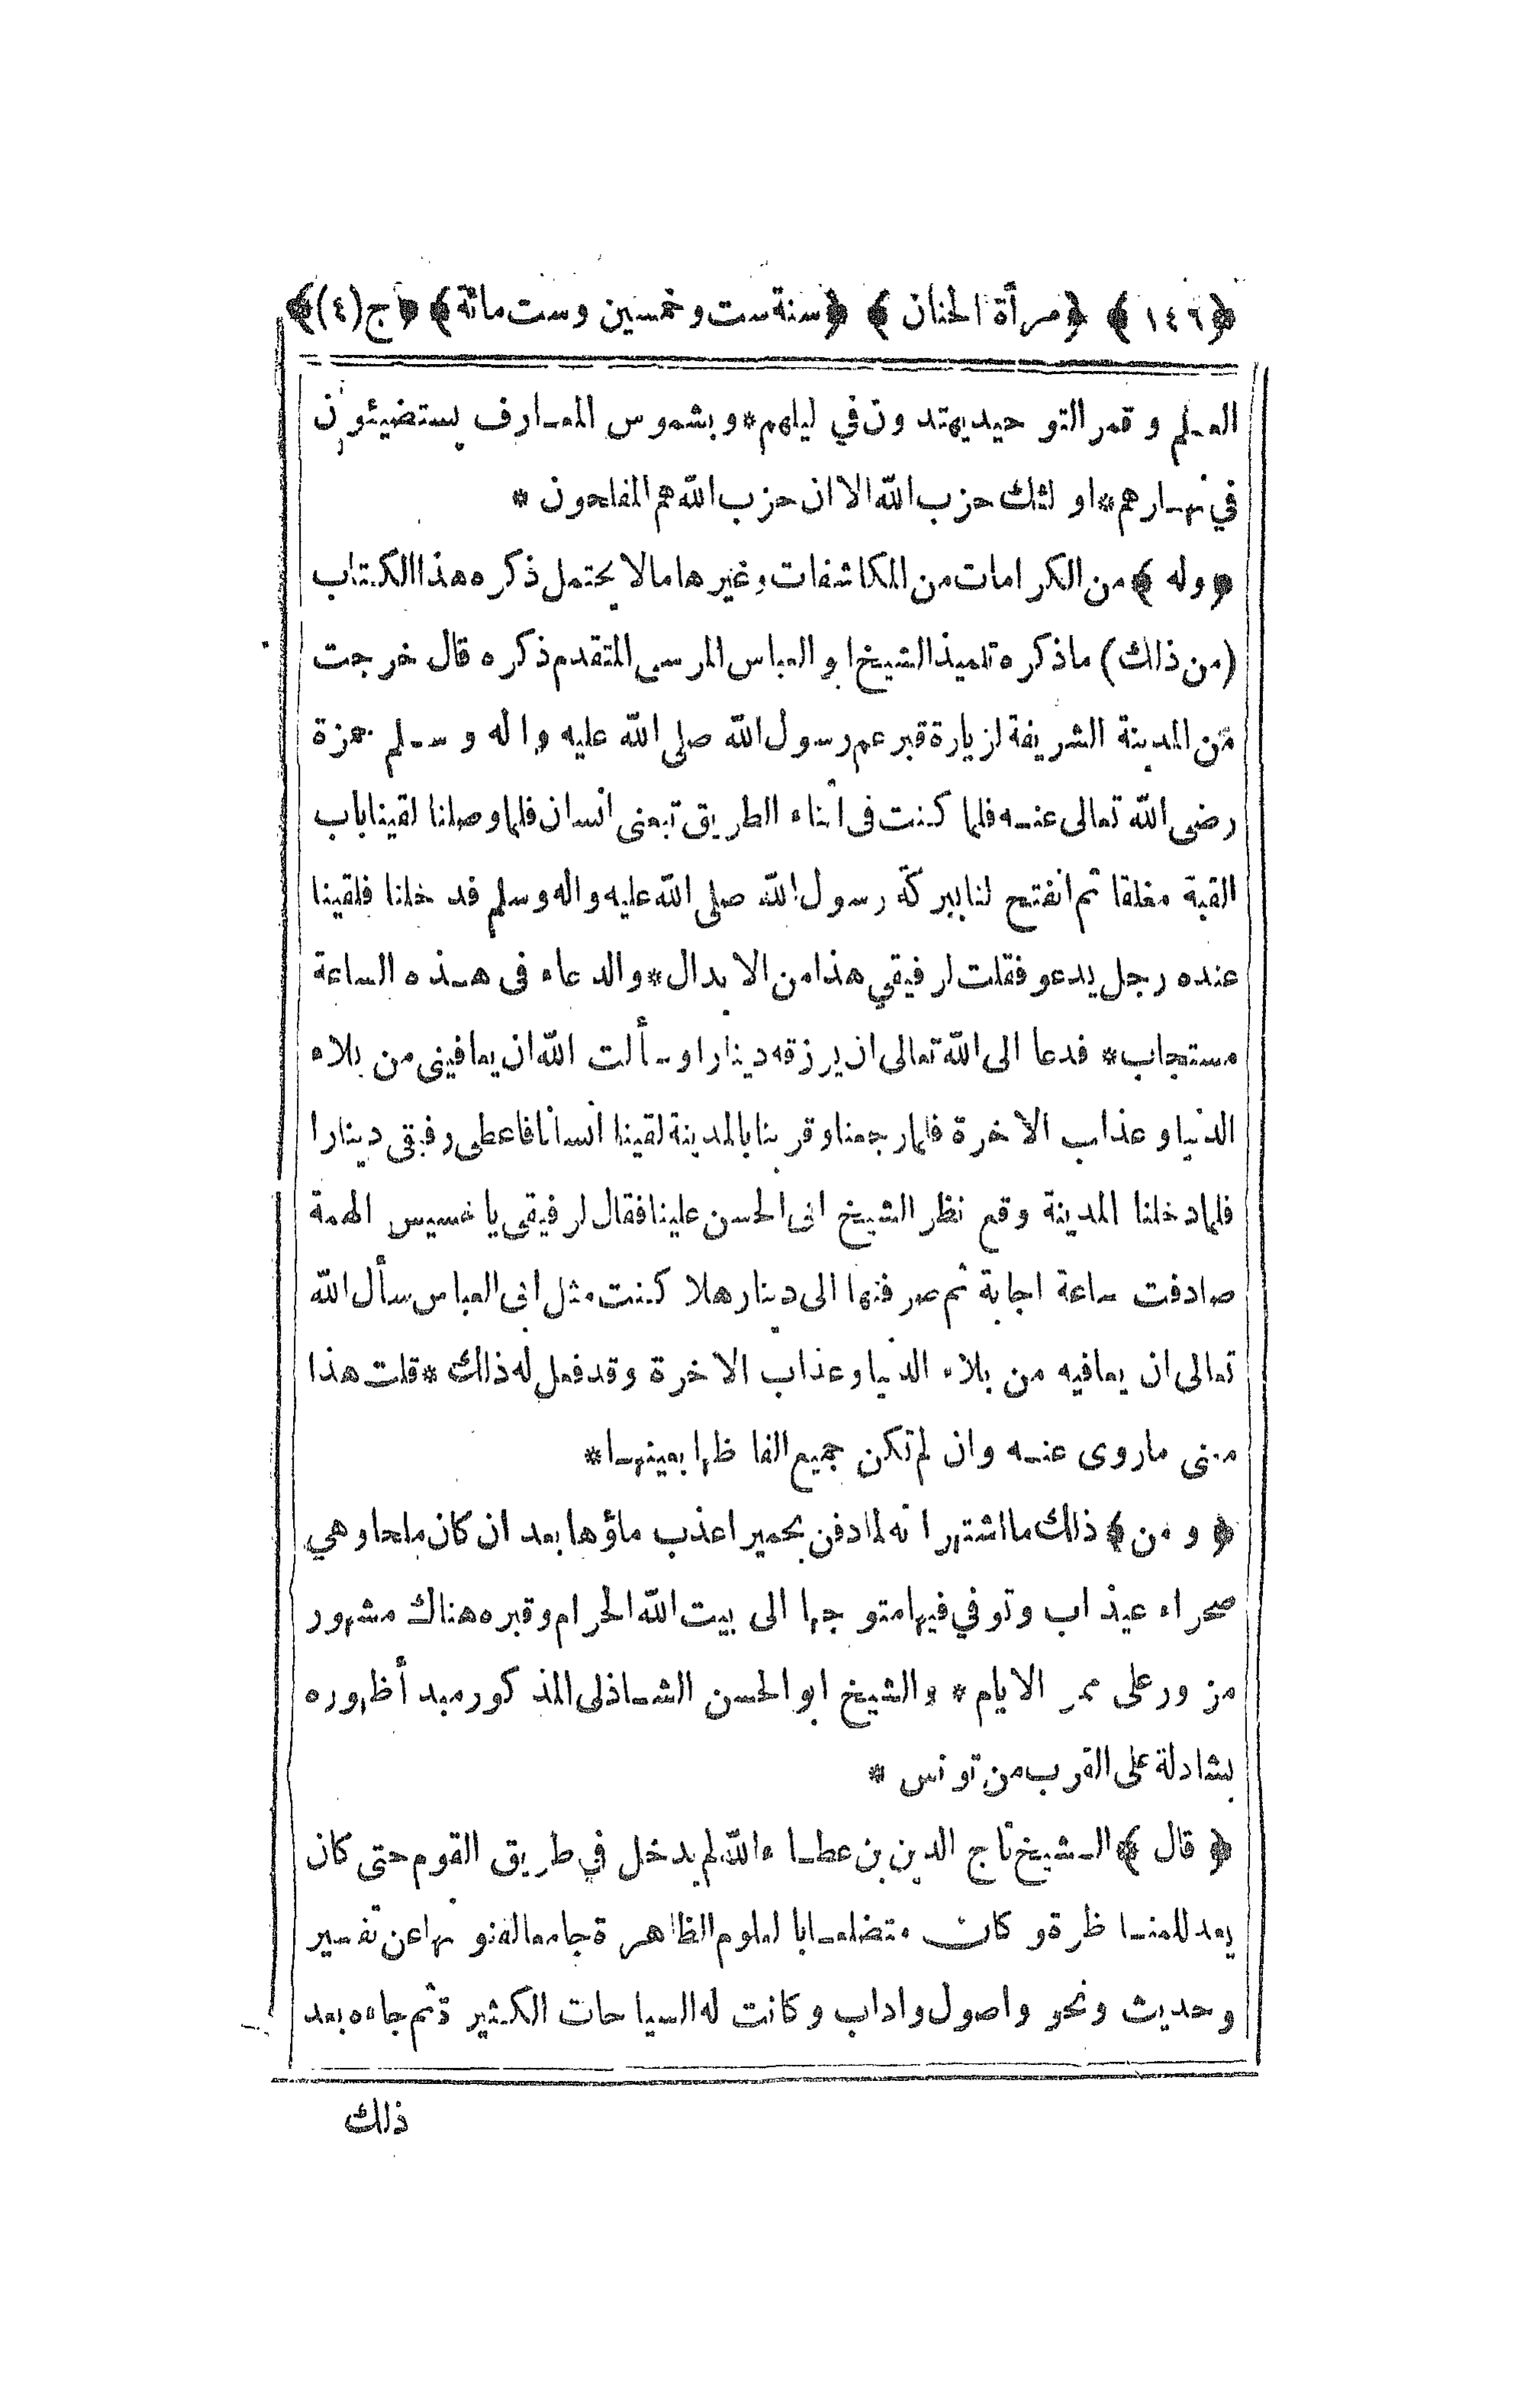 ﴿١٤٦﴾ ﴿مرأة الجنان﴾ ﴿سنة ست وخمسين وست مائة﴾ ﴿ج(٤)﴾
العلم وقمر التوحيد يهتدون في ليلهم* وبشموس المعارف يستضيئون
في نهارهم* اولئك حزب الله الا ان حزب الله هم المفلحون *
﴿وله﴾ من الكرامات من المكاشفات وغيرها مالا يحتمل ذكره هذا الكتاب
(من ذلك) ما ذكره تلميذ الشيخ ابو العباس المرسى المتقدم ذكره قال خرجت
من المدينة الشريفة لزيارة قبر عم رسول الله صلى الله عليه واله وسلم حمزة
رضى الله تعالى عنه فلما كنت فى اثناء الطريق تبعنى انسان فلما وصلنا لقينا باب
القبة مغلقا ثم انفتح لنا ببركة رسول الله صلى الله عليه واله وسلم فدخلنا فلقينا
عنده رجل يدعو فقلت لرفيقي هذا من الابدال* والدعاء فى هذه الساعة
مستجاب* فدعا الى الله تعالى ان يرزقه دينارا وسألت الله ان يعافينى من بلاء
الدنيا وعذاب الاخرة فلما رجعنا وقربنا بالمدينة لقينا انسانا فاعطى رفيقى دينارا
فلما دخلنا المدينة وقع نظر الشيخ ابى الحسن علينا فقال لرفيقى يا خسيس الهمة
صادفت ساعة اجابة ثم صرفتها الى دينار هلا كنت مثل ابى العباس سأل الله
تعالى ان يعافيه من بلاء الدنيا وعذاب الاخرة وقد فعل له ذلك* قلت هذا
معنى ماروى عنه وان لم تكن جميع الفاظها بعينها*
﴿ومن﴾ ذلك ما اشتهر انه لما دفن بحميرا عذب ماؤها بعد ان كان ملحا وهي
صحراء عيذاب وتوفي فيها متوجها الى بيت الله الحرام وقبره هناك مشهور
مزور على ممر الايام* والشيخ ابو الحسن الشاذلى المذكور مبدأ ظهوره
بشادلة على القرب من تونس *
﴿قال﴾ الشيخ تاج الدين بن عطاء الله لم يدخل في طريق القوم حتى كان
يعد للمناظرة وكان متضلعا با لعلوم الظاهرة جامعا لفنونها عن تفسير
وحديث ونحو واصول واداب وكانت له السياحات الكثيرة ثم جاءه بعد
ذلك